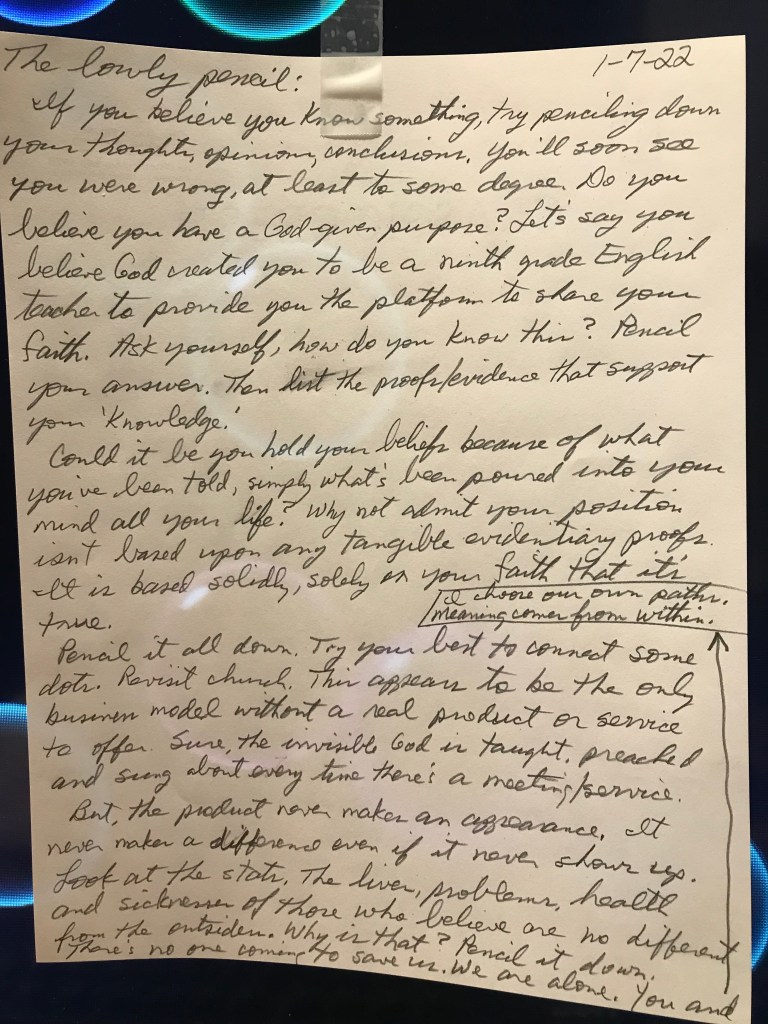 The lowly pencil:
1-7-22
If you believe you know something, try penciling down
your thoughts, opinions, conclusions. You'll soon see
you were wrong, at least to some degree. Do you
believe you have a God-given purpose? Let's say you
believe God created you to be a ninth grade English
teacher to provide you the platform to share your
faith. Ask yourself, how do you know this? Pencil
your answer. Then list the proofs/evidence that support
your 'knowledge.'
Could it be you hold your beliefs because of what
you've been told, simply what's been poured into your
mind all your life? Why not admit your position
isn't based upon any tangible evidentiary proofs.
It is based solidly, solely on your faith that it's
true.
Pencil it all down. Try your best to connect some
dots. Revisit church. This appears to be the only
business model without a real product or service
to offer. Sure, the invisible God is taught, preached
and sung about every time there's a meeting/service.
But, the product never makes an appearance. It
never makes a difference even if it never shows up.
Look at the stats. The lives, problems, health
and sicknesses of those who believe are no different
from the outsiders. Why is that? Pencil it down.
There's no one coming to save us. We are alone. You and
I choose our own paths.
Meaning comes from within.